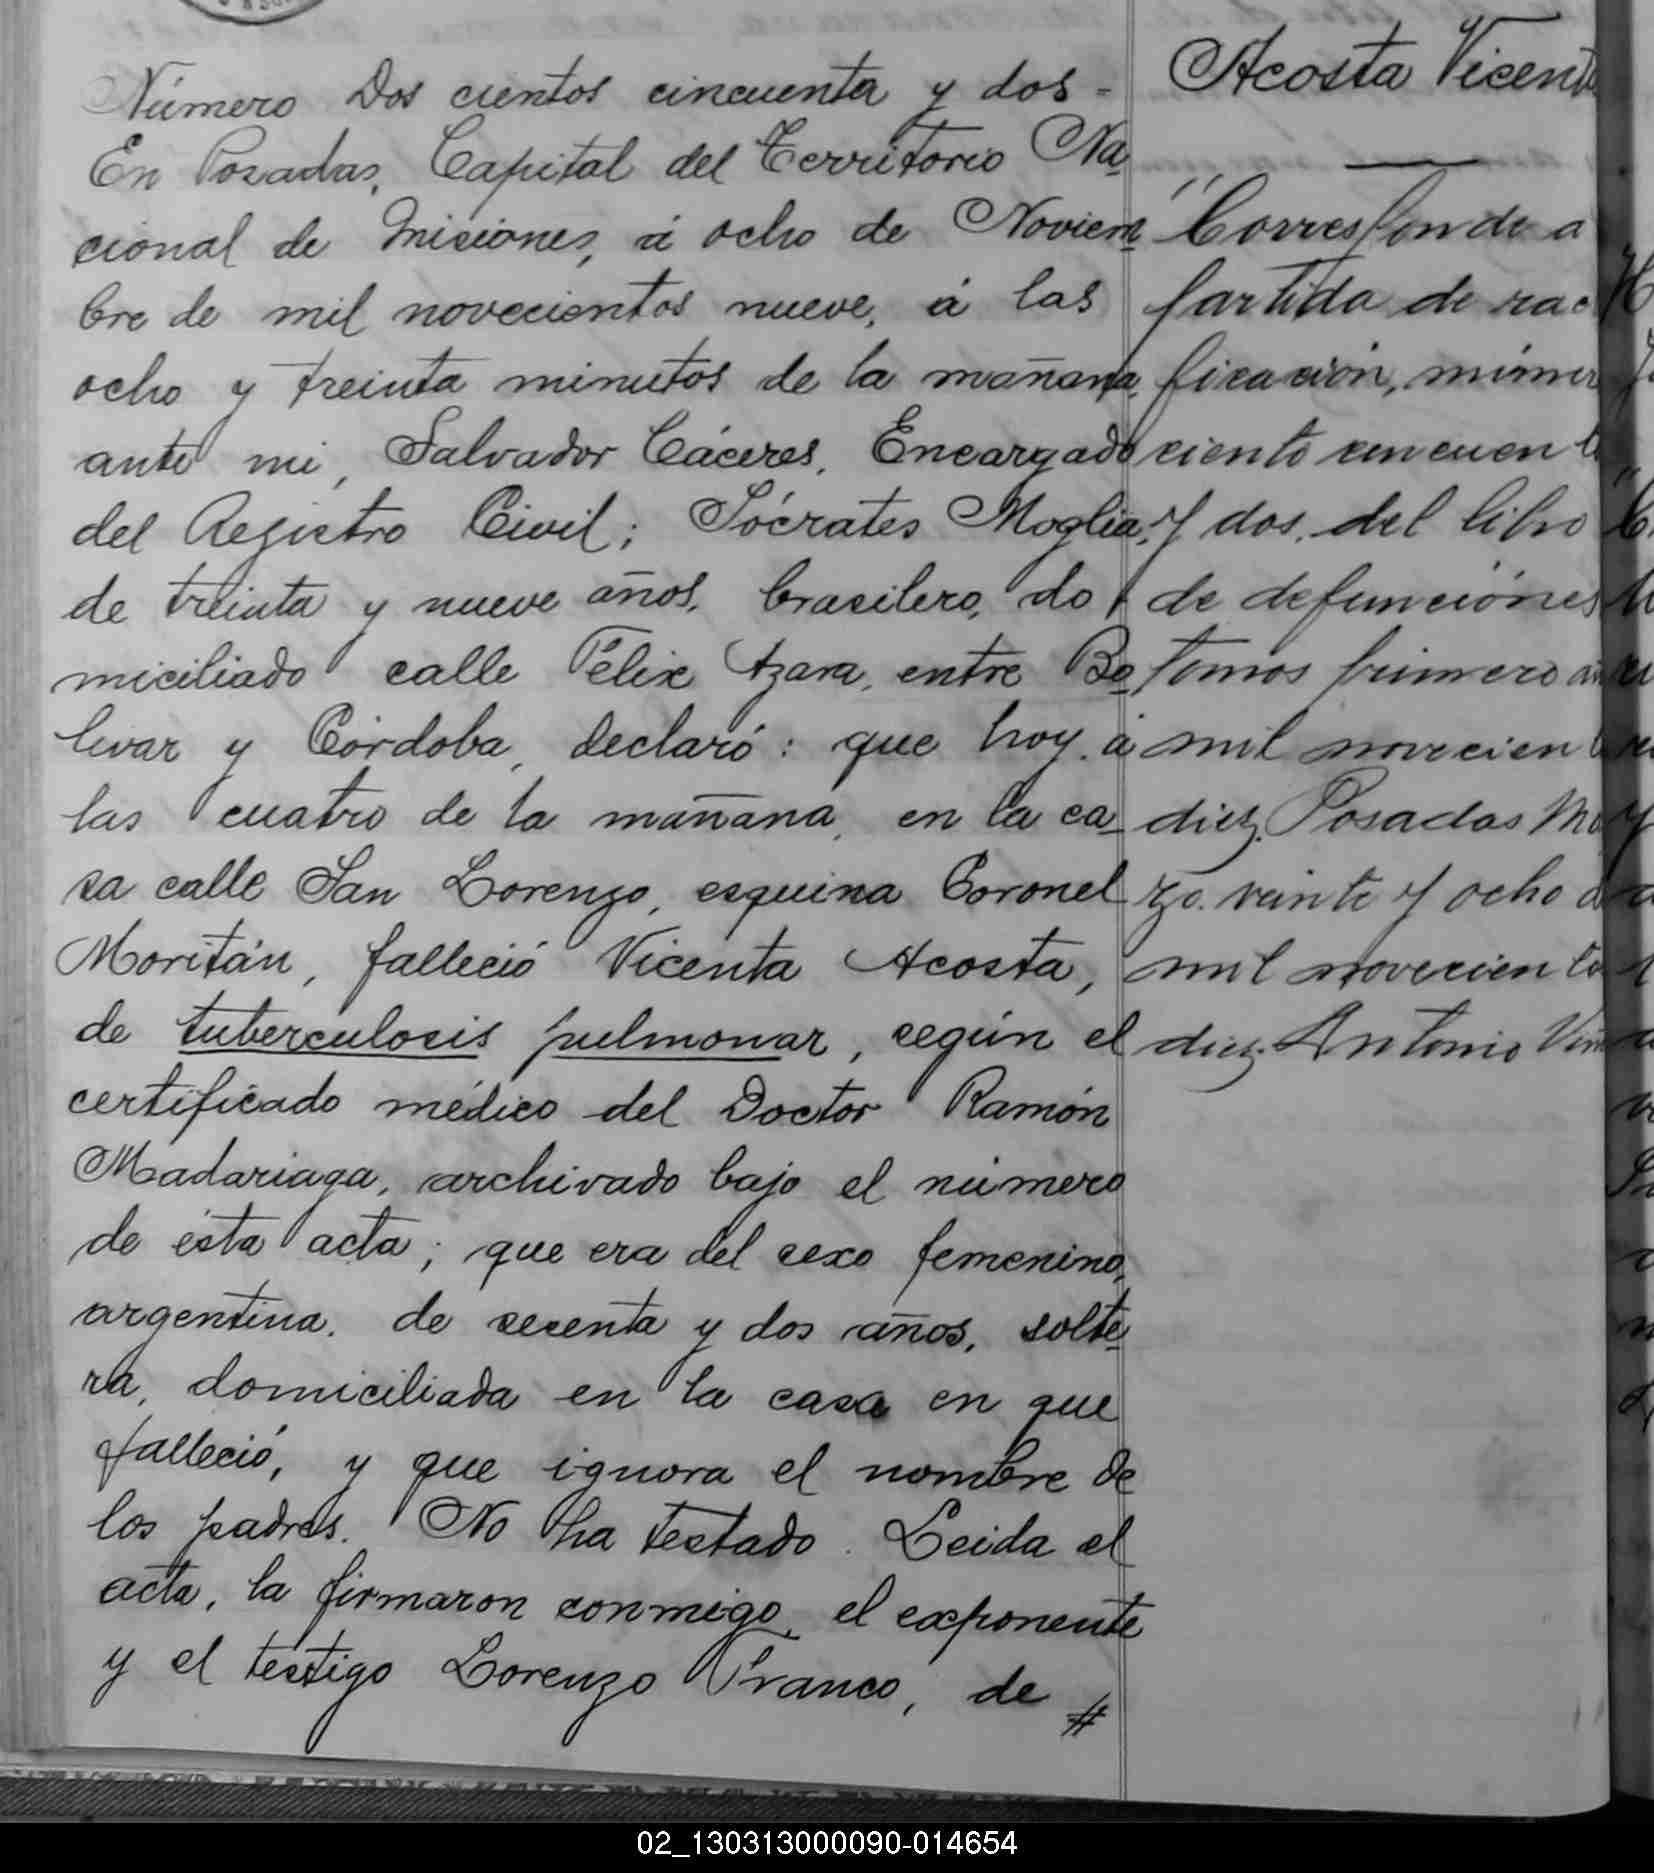 Número Dos cientos cincuenta y dos -
En Posadas, Capital del Territorio Na-
cional de Misiones, á ocho de Noviem-
bre de mil novecientos nueve, á las
ocho y treinta minutos de la mañana,
ante mi, Salvador Cáceres, Encargado
del Registro Civil; Sócrates Moglia,
de treinta y nueve años, brasilero, do
miciliado calle Félix Azara, entre Bo-
livar y Córdoba, declaró: que hoy á
las cuatro de la mañana, en la ca-
sa calle San Lorenzo, esquina Coronel
Moritán, falleció Vicenta Acosta,
de tuberculosis pulmonar, según el
certificado médico del Doctor Ramón
Madariaga, archivado bajo el número
de ésta acta; que era del sexo femenino,
argentina, de sesenta y dos años, solte-
ra, domiciliada en la casa en que
falleció, y que ignora el nombre de
los padres. No ha testado. Leida el
acta, la firmaron conmigo, el exponente
y el testigo Lorenzo Franco, de #
Acosta Vicent
"Corresponde a
partida de rac
ficación, númer
ciento cincuen
y dos, del libro
de defunciones
tomos primero
mil novecien
diez. Posadas Ma
zo. veinte y ocho d
mil novecien to
diez. Antonio
02_130313000090-014654